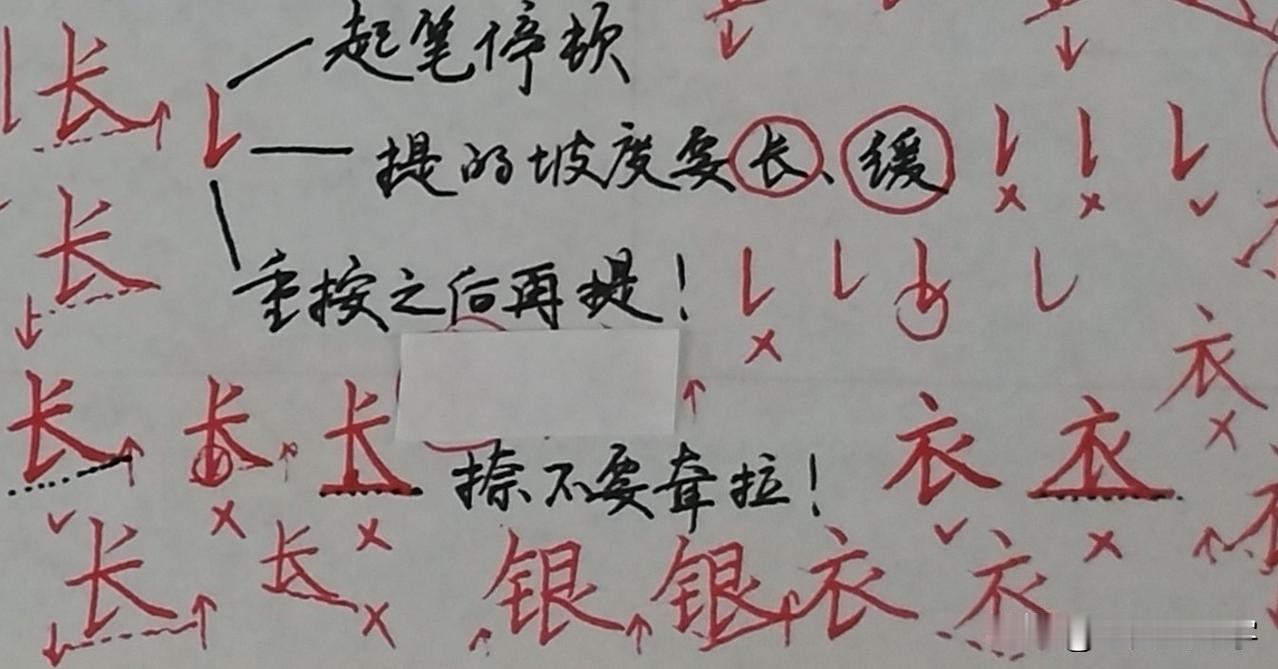 长 起笔停顿
提的坡度要长、缓
长
重按之后再提！
长 长 长
捺不要耷拉！
衣 衣 衣
长 长 银 银 衣 衣